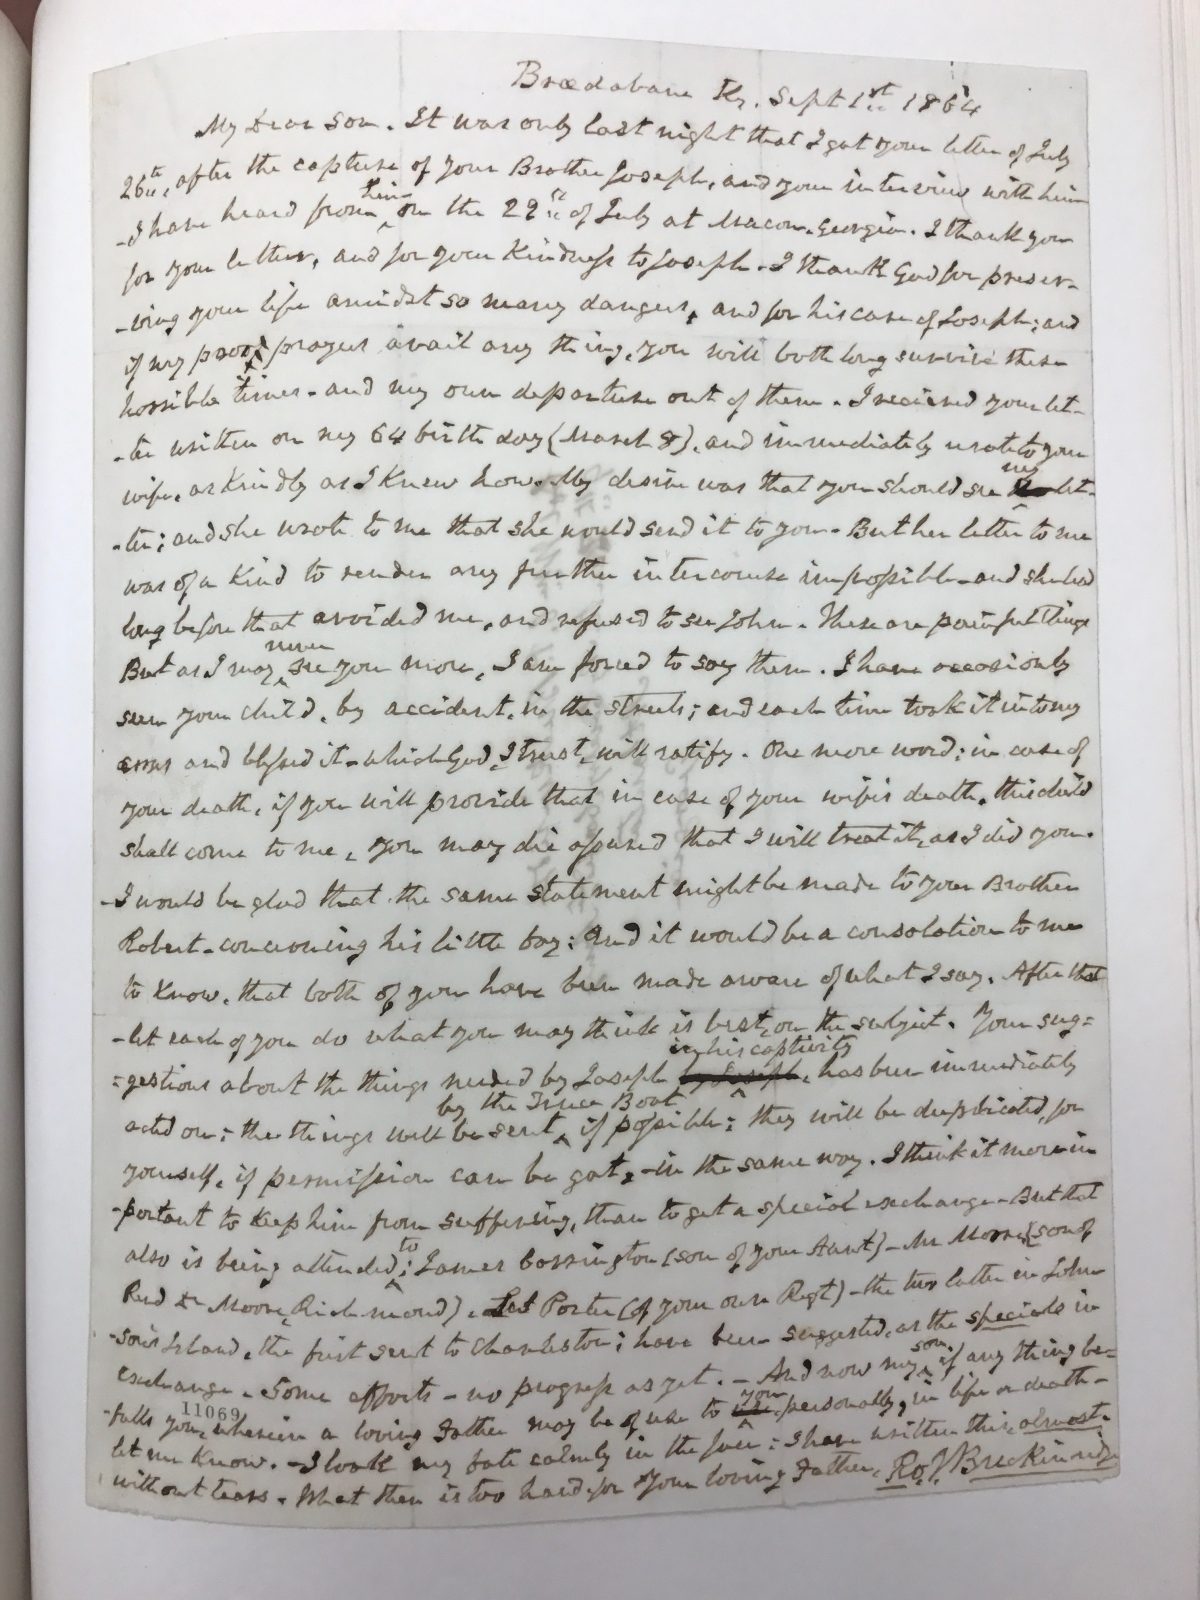 Brædabane Ky. Sept 1st 1864
My Dear Son. It was only last night that I got your letter of July
26th, after the capture of your Brother Joseph, and your interview with him
-I have heard from him on the 29th of July at Macon, Georgia. I thank you
for your letter, and for your kindness to Joseph. I thank God for preser-
-ving your life amidst so many dangers, and for his care of Joseph; and
if my poor prayers avail any thing, you will both long survive these
horrible times - and my own departure out of them. I recieved your let-
-ter written on my 64 birth day (March 8), and immediately wrote to your
wife, as kindly as I knew how. My desire was that you should see my let-
-ter; and she wrote to me that she would send it to you. But her letter to me
was of a kind to render any further intercourse impossible - and she had
long before that avoided me, and refused to see John. These are painful things
But as I may never see you more, I am forced to say them. I have occasionly
seen your child, by accident, in the streets; and each time took it into my
arms and blessed it - which God, I trust, will ratify. One more word; in case of
your death, if you will provide that in case of your wife's death, this child
shall come to me, you may die assured that I will treat it, as I did you.
-I would be glad that the same statement might be made to your Brother
Robert - concerning his little boy; and it would be a consolation to me
to know, that both of you have been made aware of what I say. After that
-let each of you do what you may think is best, on the subject. Your sug=
=gestions about the things needed by Joseph by Joseph in his captivity, has been immediately
acted on; the things will be sent by the Truce Boat if possible; they will be duplicated, for
yourself, if permission can be got, - in the same way. I think it more im
-portant to keep him from suffering, than to get a special exchange - But that
also is being attended to; James Corrington (son of your Aunt) - Mr Moore (son of
Revd Dr Moore, Richmond), Porter (of your own Regt) - the two latter in John-
-son's Island, the first sent to Charleston; have been suggested, as the specials in
exchange. Some efforts - no progress as yet. - And now my son, if any thing be=
-falls you, wherein a loving Father may be of use to you personally, in life or death -
let me know. - I look my fate calmly in the face: I have written this, almost,
without tears. What then is too hard for Your loving Father, Ro. J. Breckinridge
11069